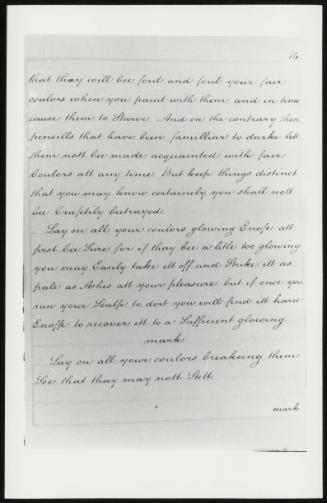 14.
that thay will bee foul and foul your fair
coulors when you paint with them and in time
cause them to Starve. And on the contrary those
pencills that have been familliar to darke lett
them nott bee made acquainted with fair
Coulors att any time. But keep things distinct
that you may know certainly you shall nott
bee Craftily betrayed.
Lay on all your coulors glowing Enofe att
first bee Sure for if thay bee a litle too glowing
you may Easily take itt off and Strike itt as
pale as Ashes att your pleasure but if once you
run your Scalfe to dirt you will find itt hard
Enoffe to recover itt to a Suffecient glowing
mark
Lay on all your coulors breakeing them
Soe that thay may nott Slott.
mark